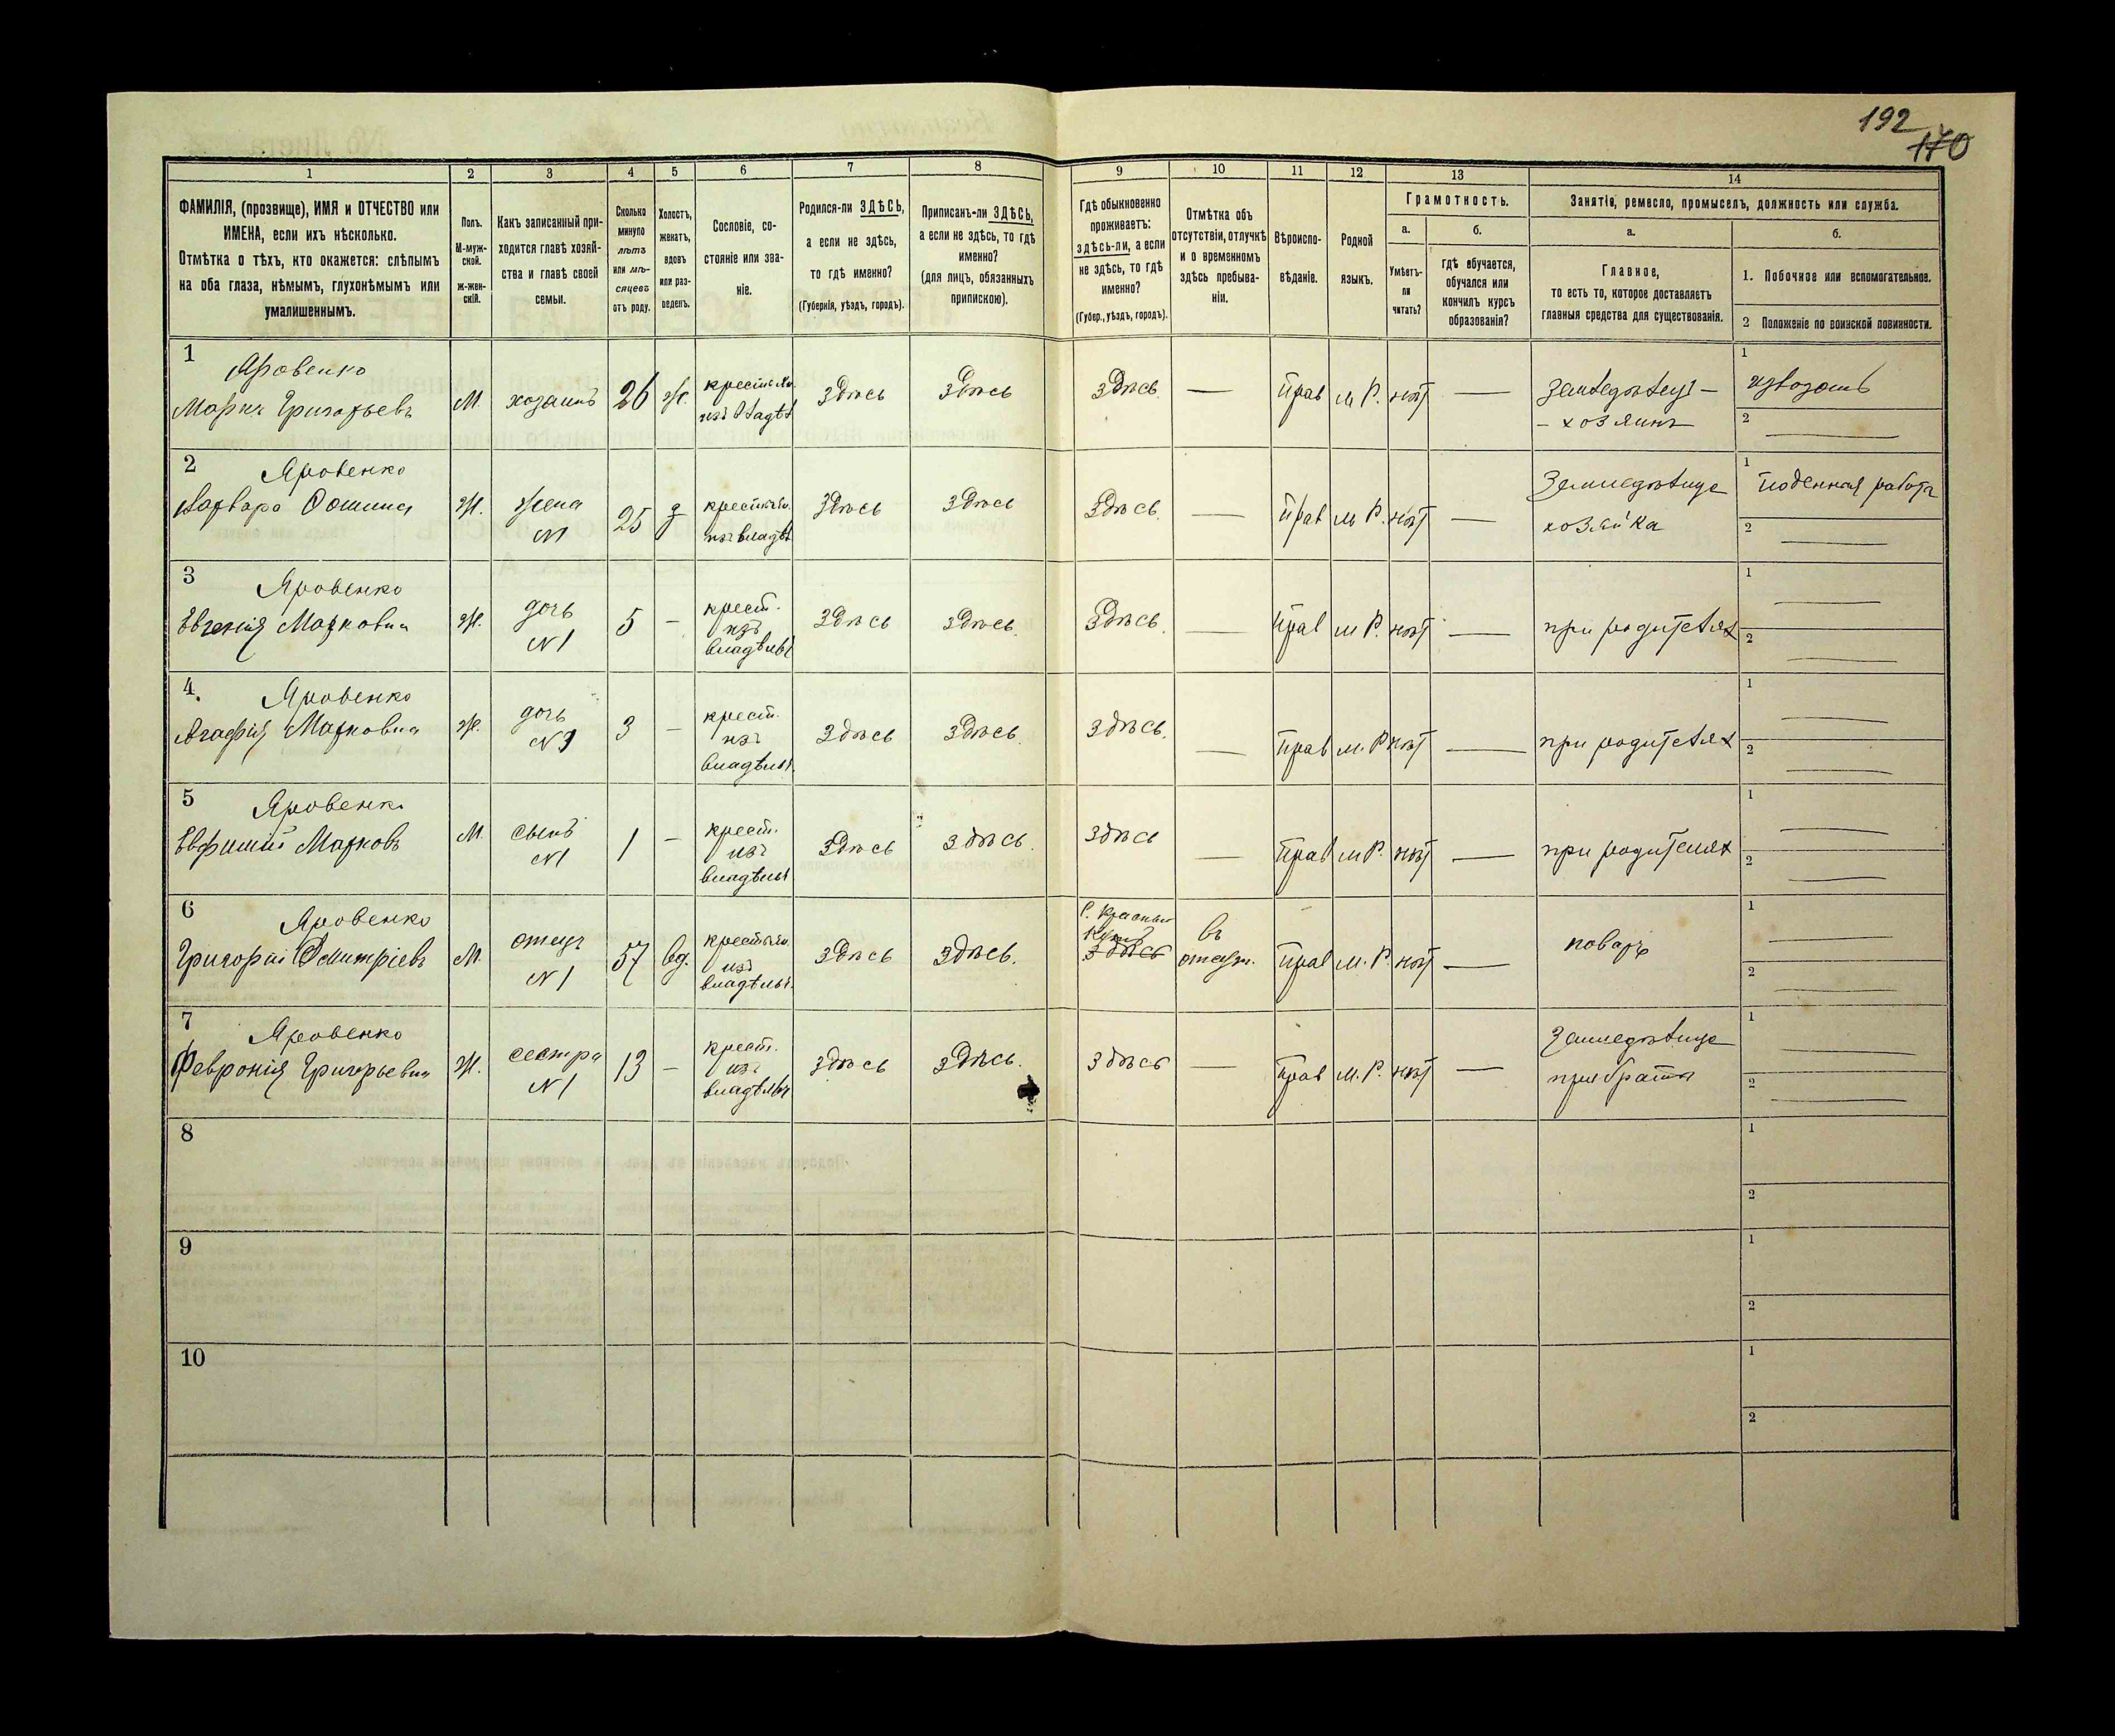 192
170
1 2 3 4 5 6 7 8 9 10 11 12 13 14
ФАМИЛІЯ, (прозвище), ИМЯ и ОТЧЕСТВО или
ИМЕНА, если ихъ нѣсколько.
Отмѣтка о тѣхъ, кто окажется: слѣпымъ
на оба глаза, нѣмымъ, глухонѣмымъ или
умалишеннымъ.
Полъ.
М-муж-
ской.
Ж-жен-
скій.
Какъ записанный при-
ходится главѣ хозяй-
ства и главѣ своей
семьи.
Сколько
минуло
лѣтъ
или мѣ-
сяцевъ
отъ роду.
Холостъ,
женатъ,
вдовъ
или раз-
веденъ.
Сословіе, со-
стояніе или зва-
ніе.
Родился-ли ЗДѢСЬ,
а если не здѣсь,
то гдѣ именно?
(Губернія, уѣздъ, городъ).
Приписанъ-ли ЗДѢСЬ,
а если не здѣсь, то гдѣ
именно?
(для лицъ, обязанныхъ
припискою).
Гдѣ обыкновенно
проживаетъ:
здѣсь-ли, а если
не здѣсь, то гдѣ
именно?
(Губер., уѣздъ, городъ).
Отмѣтка объ
отсутствіи, отлучкѣ
и о временномъ
здѣсь пребыва-
ніи.
Вѣроиспо-
вѣданіе.
Родной
языкъ.
Грамотность.
а.
Умѣетъ-
ли
читать?
б.
Гдѣ обучается,
обучался или
кончилъ курсъ
образованія?
Занятіе, ремесло, промыселъ, должность или служба.
а.
Главное,
то есть то, которое доставляетъ
главныя средства для существованія.
б.
1. Побочное или вспомогательное.
2 Положеніе по воинской повинности.
1
Яровенко
Маркъ Григорьевъ
М.
хозяинъ
26
ж.
здѣсь
здѣсь
здѣсь.
—
Прав
м Р.
нѣт
—
Земледѣлецъ –
– хозяинъ
1
извозомъ
2
2
Яровенко
Варвара Фомина
Ж.
жена
N1
25
з
здѣсь
здѣсь
здѣсь.
—
Прав
м Р.
нѣт
—
Земледѣлица
хозяйка
1
Поденная работа
2
3
Яровенко
Евгенія Маркова
ж.
дочь
N1
5
—
крест.
изъ
владѣльч
здѣсь
здѣсь.
здѣсь.
—
Прав
м Р.
нѣт
—
при родителях
1
2
4.
Яровенко
Агафія Маркова
ж.
дочь
N1
3
—
крест.
изъ
владѣльч.
здѣсь
здѣсь.
здѣсь.
—
Прав
м. Р
нѣт
—
при родителях
1
2
5
Яровенко
Евфимій Марковъ
М.
сынъ
N1
1
—
крест.
изъ
владѣльч
здѣсь
здѣсь.
здѣсь
—
Прав
м Р.
нѣт
—
при родителях
1
2
6
Яровенко
Григорій Дмитріевъ
М.
отецъ
N1
57
вд.
изъ
владѣльч.
здѣсь
здѣсь.
здѣсь
въ
Прав
м. Р.
нѣт
—
поваръ
1
2
7
Яровенко
Февронія Григорьева
Ж.
сестра
N1
13
—
крест.
изъ
владѣльч
здѣсь
здѣсь.
здѣсь
—
Прав
м. Р.
нѣт
—
Земледѣлица
при братѣ
1
2
8
1
2
9
1
2
10
1
2